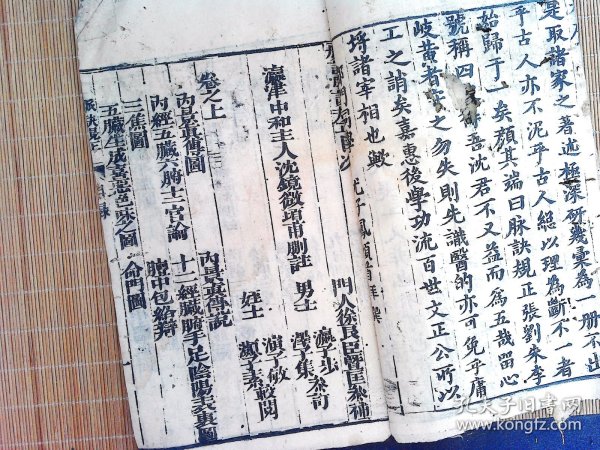 是取諸家之著述極深研幾彙為一冊不出
乎古人亦不泥乎古人總以理為斷不一者
始歸于一矣顏其端曰脉訣規正張劉朱李
號稱四 吾沈君不又益而為五哉留心
岐黃者 之勿失則先識醫的亦可免乎庸
工之誚矣嘉惠後學功流百世文正公所以
埒諸宰相也歟
瀛津中和主人沈鏡薇垣甫刪註
門人徐良臣
男士
姪士
卷之上
內景真傳圖
內景真傳說
內經五臟六腑十二官論
十二經臟腑手足陰陽表裏圖
三焦圖
膻中包絡辯
五臟生成喜惡色味之圖
命門圖
孔夫子旧书网
www.kongfz.com